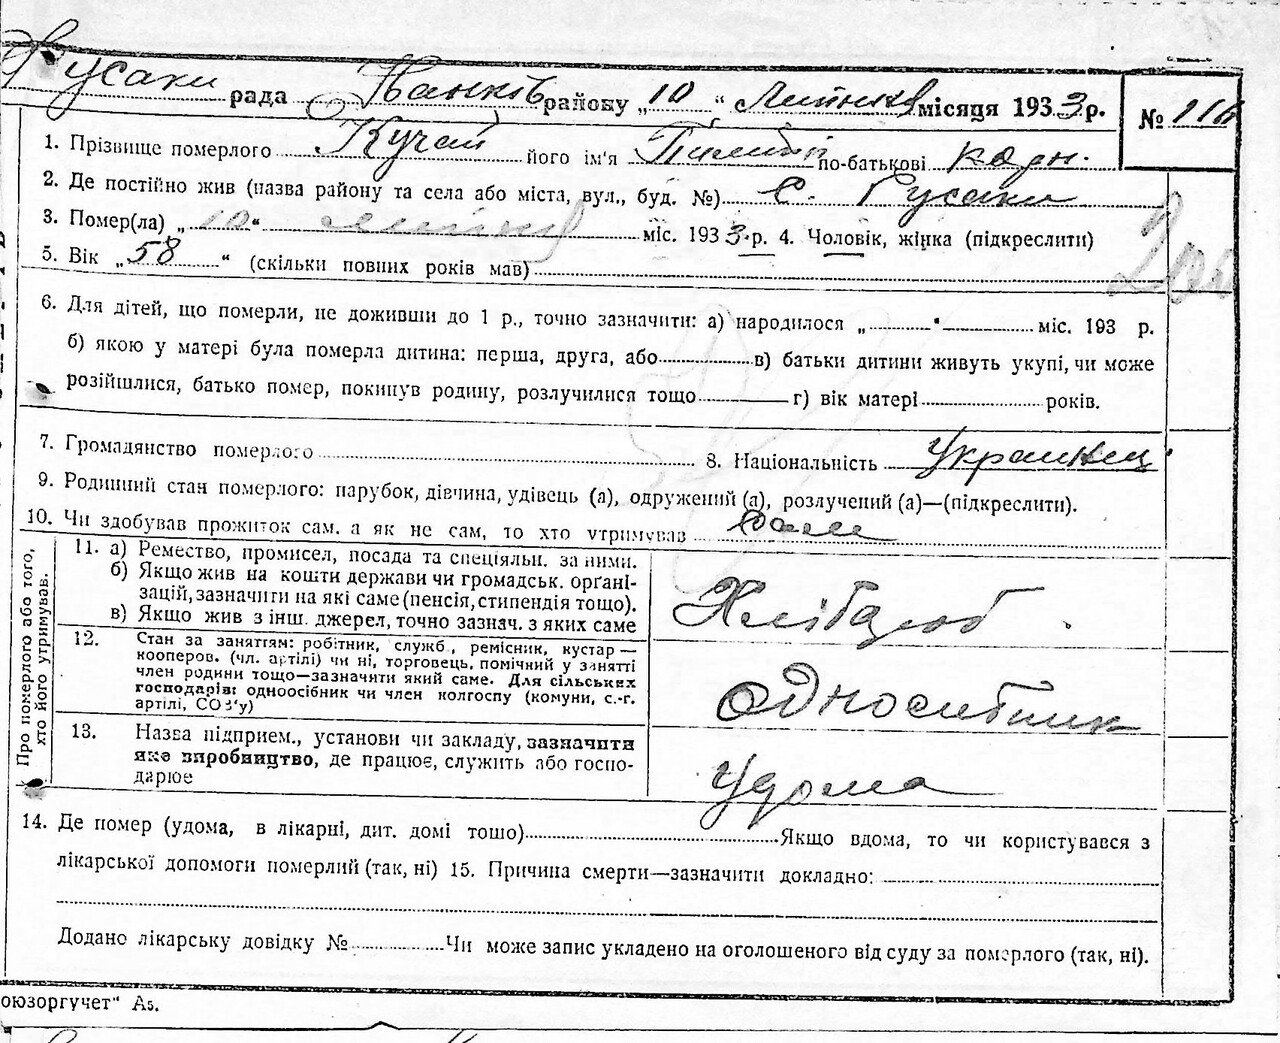 Русаки рада Іванків району „10“ Липня місяця 1933 р. № 116
1. Прізвище померлого Кучай його ім'я Пилип по-батькові корн.
2. Де постійно жив (назва району та села або міста, вул., буд. №) с. Русаки
3. Помер(ла) „10“ липня міс. 1933 р. 4. Чоловік, жінка (підкреслити)
5. Вік „58“ (скільки повних років мав)
6. Для дітей, що померли, не доживши до 1 р., точно зазначити: а) народилося „ “ міс. 193 р.
б) якою у матері була померла дитина: перша, друга, або в) батьки дитини живуть укупі, чи може
розійшлися, батько помер, покинув родину, розлучилися тощо г) вік матері років.
7. Громадянство померлого 8. Національність Украинец
9. Родинний стан померлого: парубок, дівчина, удівець (а), одружений (а), розлучений (а)—(підкреслити).
10. Чи здобував прожиток сам, а як не сам, то хто утримував сам
Про померлого або того, хто його утримував.
11. а) Ремество, промисел, посада та спеціяльн. за ними.
б) Якщо жив на кошти держави чи громадськ. орґані-
зацій, зазначити на які саме (пенсія, стипендія тощо).
в) Якщо жив з інш. джерел, точно зазнач. з яких саме
Хлібороб
12. Стан за заняттям: робітник, служб., ремісник, кустар —
кооперов. (чл. артілі) чи ні, торговець, помічний у занятті
член родини тощо—зазначити який саме. Для сільських
господарів: одноосібник чи член колгоспу (комуни, с.-г.
артілі, СОЗ'у)
односібник
13. Назва підприєм., установи чи закладу, зазначити
яке виробництво, де працює, служить або госпо-
дарює
удома
14. Де помер (удома, в лікарні, дит. домі тошо) Якщо вдома, то чи користувався з
лікарської допомоги померлий (так, ні) 15. Причина смерти—зазначити докладно:
Додано лікарську довідку № Чи може запис укладено на оголошеного від суду за померлого (так, ні).
оюзоргучет“ Аз.